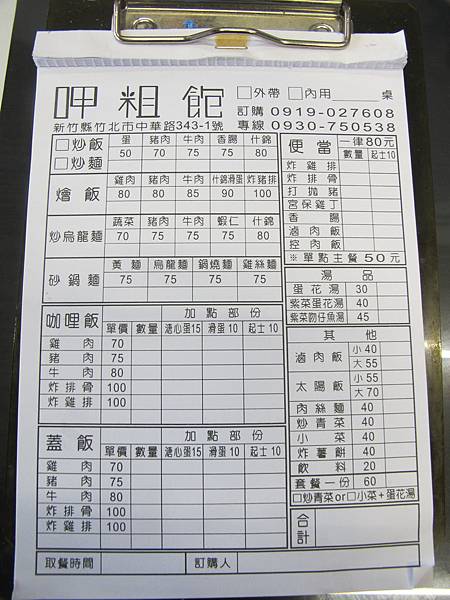 呷粗館
□外帶 □內用 桌
訂購 0919-027608
新竹縣竹北市中華路343-1號 專線 0930-750538
□炒飯 □炒麵 蛋 豬肉 牛肉 香腸 什錦
50 70 75 75 80
燴飯 雞肉 豬肉 牛肉 什錦滑蛋 炸豬排
80 80 85 90 100
炒烏龍麵 蔬菜 豬肉 牛肉 蝦仁 什錦
70 75 75 75 80
砂鍋麵 黃麵 烏龍麵 鍋燒麵 雞絲麵
75 75 75 75
咖哩飯 加點部份
單價 數量 溏心蛋15 滑蛋10 起士10
雞肉 70
豬肉 75
牛肉 80
炸排骨 100
炸雞排 100
蓋飯 加點部份
單價 數量 溏心蛋15 滑蛋10 起士10
雞肉 70
豬肉 75
牛肉 80
炸排骨 100
炸雞排 100
取餐時間 訂購人
便當 一律80元
數量 起士10
炸雞排
炸排骨
打拋豬
宮保雞丁
香腸
滷肉飯
控肉飯
※單點主餐50元
湯品
蛋花湯 30
紫菜蛋花湯 40
紫菜吻仔魚湯 45
其他
滷肉飯 小40
大55
太陽飯 小55
大70
肉絲麵 40
炒青菜 40
小菜 40
炸薯餅 40
飲料 20
套餐一份 60
□炒青菜or□小菜+蛋花湯
合計